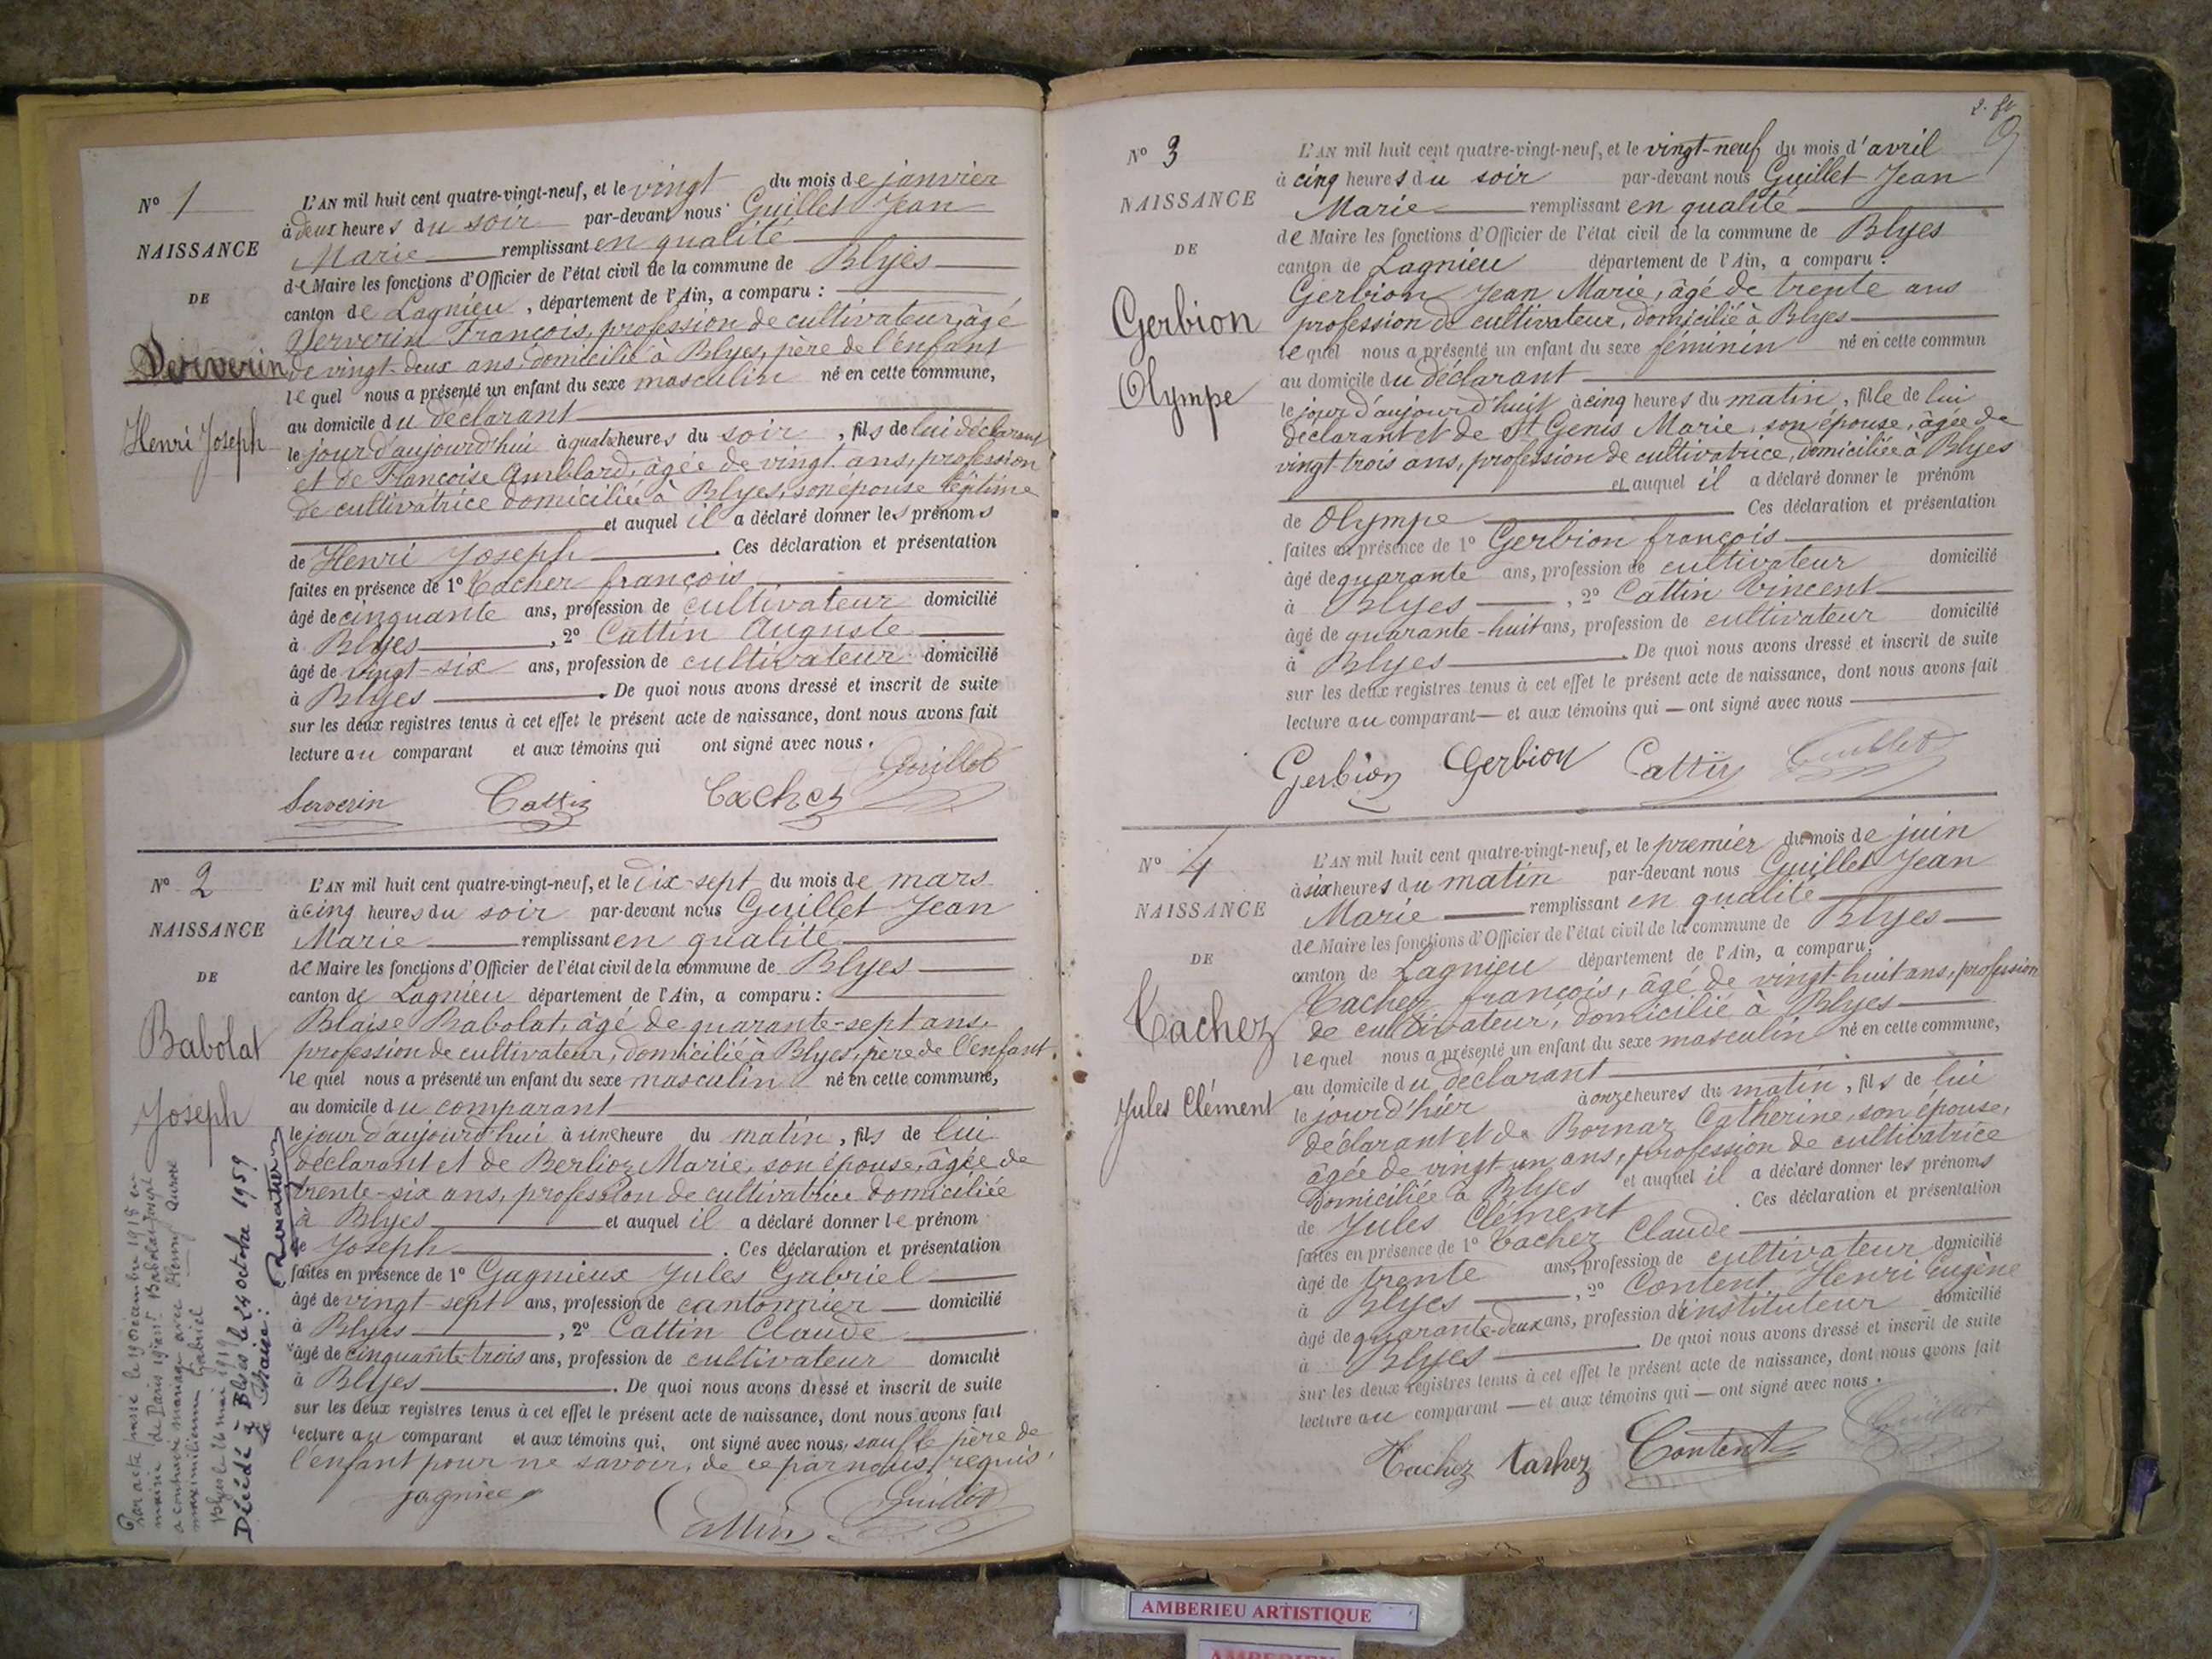 N° 1
NAISSANCE
DE
Henri Joseph
L'AN mil huit cent quatre-vingt-neuf, et le vingt du mois de janvier
à deux heures du soir par-devant nous Guillet Jean
Marie remplissant en qualité
de Maire les fonctions d'Officier de l'état civil de la commune de Blyes
canton de Lagnieu, département de l'Ain, a comparu :
François, profession de cultivateur, âgé
de vingt-deux ans, domicilié à Blyes, père de l'enfant
lequel nous a présenté un enfant du sexe masculin né en cette commune,
au domicile du déclarant
le jour d'aujourd'hui à heures du soir, fils de lui déclarant
et de Françoise Amblard, âgée de vingt ans, profession
de cultivatrice domiciliée à Blyes, son épouse légitime
et auquel il a déclaré donner les prénoms
de Henri Joseph. Ces déclaration et présentation
faites en présence de 1° Tacher françois
âgé de cinquante ans, profession de cultivateur domicilié
à Blyes, 2° Cattin Auguste
âgé de vingt-six ans, profession de cultivateur domicilié
à Blyes. De quoi nous avons dressé et inscrit de suite
sur les deux registres tenus à cet effet le présent acte de naissance, dont nous avons fait
lecture au comparant et aux témoins qui ont signé avec nous.
Guillet
Serverin Cattin Tachez
N° 2
NAISSANCE
DE
Babolat
Joseph
L'AN mil huit cent quatre-vingt-neuf, et le dix-sept du mois de mars
à cinq heures du soir par-devant nous Guillet Jean
Marie remplissant en qualité
de Maire les fonctions d'Officier de l'état civil de la commune de Blyes
canton de Lagnieu département de l'Ain, a comparu :
Blaise Babolat, âgé de quarante-sept ans,
profession de cultivateur, domicilié à Blyes, père de l'enfant.
lequel nous a présenté un enfant du sexe masculin né en cette commune,
au domicile du comparant
le jour d'aujourd'hui à une heure du matin, fils de lui
déclarant et de Berlioz Marie, son épouse, âgée de
trente-six ans, profession de cultivatrice domiciliée
à Blyes et auquel il a déclaré donner le prénom
de Joseph. Ces déclaration et présentation
faites en présence de 1° Gagnieux Jules Gabriel
âgé de vingt-sept ans, profession de cantonnier domicilié
à Blyes, 2° Cattin Claude
âgé de cinquante-trois ans, profession de cultivateur domicilié
à Blyes. De quoi nous avons dressé et inscrit de suite
sur les deux registres tenus à cet effet le présent acte de naissance, dont nous avons fait
lecture au comparant et aux témoins qui, ont signé avec nous, sauf le père de
l'enfant pour ne savoir, de ce par nous requis.
Cattin Guillet
Par acte passé le 19 décembre 1918 en
mairie de Paris Babolat Joseph
a contracté mariage avec Henry Aurore
maximilienne Gabriel
Blyes le
Décédé à Blyes le 24 octobre 1959
Le Maire :
N° 3
NAISSANCE
DE
Gerbion
Olympe
L'AN mil huit cent quatre-vingt-neuf, et le vingt-neuf du mois d'avril
à cinq heures du soir par-devant nous Guillet Jean
Marie remplissant en qualité
de Maire les fonctions d'Officier de l'état civil de la commune de Blyes
canton de Lagnieu département de l'Ain, a comparu :
Gerbion Jean Marie, âgé de trente ans
profession de cultivateur, domicilié à Blyes
lequel nous a présenté un enfant du sexe féminin né en cette commun
au domicile du déclarant
le jour d'aujourd'huit à cinq heures du matin, fille de lui
déclarant et de St Genis Marie, son épouse, âgée de
vingt-trois ans, profession de cultivatrice, domiciliée à Blyes
et auquel il a déclaré donner le prénom
de Olympe Ces déclaration et présentation
faites en présence de 1° Gerbion françois
âgé de quarante ans, profession de cultivateur domicilié
à Blyes, 2° Cattin Vincent
âgé de quarante-huit ans, profession de cultivateur domicilié
à Blyes. De quoi nous avons dressé et inscrit de suite
sur les deux registres tenus à cet effet le présent acte de naissance, dont nous avons fait
lecture au comparant et aux témoins qui ont signé avec nous
Gerbion Gerbion Cattin Guillet
N° 4
NAISSANCE
DE
Tachez
Jules Clément
L'AN mil huit cent quatre-vingt-neuf, et le premier du mois de juin
à six heures du matin par-devant nous Guillet Jean
Marie remplissant en qualité
de Maire les fonctions d'Officier de l'état civil de la commune de Blyes
canton de Lagnieu département de l'Ain, a comparu,
Tachez françois, âgé de vingt-huit ans, profession
de cultivateur, domicilié à Blyes
lequel nous a présenté un enfant du sexe masculin né en cette commune,
au domicile du déclarant
le jour d'hier à onze heures du matin, fils de lui
déclarant et de Bornaz Catherine, son épouse,
âgée de vingt-un ans, profession de cultivatrice
domiciliée à Blyes et auquel il a déclaré donner les prénoms
de Jules Clément. Ces déclaration et présentation
faites en présence de 1° Tachez Claude
âgé de trente ans, profession de cultivateur domicilié
à Blyes, 2° Content Henri Eugène
âgé de quarante-deux ans, profession d'instituteur domicilié
à Blyes. De quoi nous avons dressé et inscrit de suite
sur les deux registres tenus à cet effet le présent acte de naissance, dont nous avons fait
lecture au comparant et aux témoins qui ont signé avec nous.
Tachez Tachez Content Guillet
AMBERIEU ARTISTIQUE
AMBERIEU